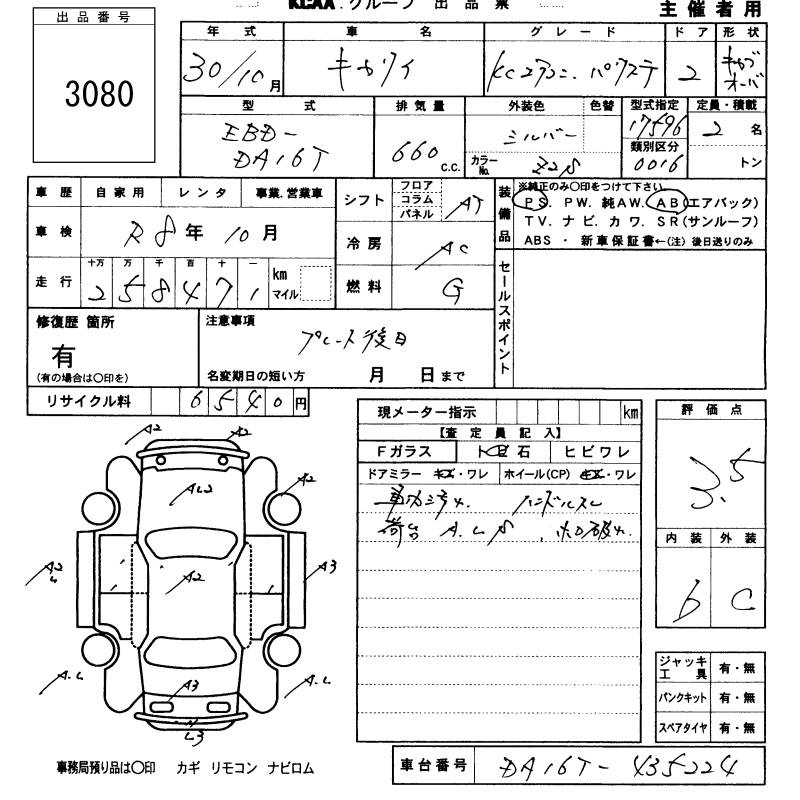 KCAA.グループ 出品票
主催者用
出品番号
3080
年式 車名 グレード ドア 形状
30/10月 キャリイ KCエアコン.パワステ 2 キャブオーバ
型式 排気量 外装色 色替 型式指定 定員・積載
EBD-
DA16T
660 c.c.
シルバー
カラーNo. Z2S
17596
類別区分
0016
2名
トン
車歴 自家用 レンタ 事業.営業車
車検 R8年 10月
走行 十万 万 千 百 十 一
258471 km マイル
シフト フロア コラム パネル AT
冷房 AC
燃料 G
装備品
※純正のみ〇印をつけて下さい
PS. PW. 純AW. AB(エアバック)
TV. ナビ. カワ. SR(サンルーフ)
ABS ・ 新車保証書←(注) 後日送りのみ
セールスポイント
修復歴 箇所
有
(有の場合は〇印を)
注意事項
プレート後日
名変期日の短い方 月 日まで
リサイクル料 6540円
現メーター指示 km
【査定員記入】
Fガラス トビ石 ヒビワレ
ドアミラー キズ・ワレ ホイール(CP) キズ・ワレ
ハンドルスレ
荷台 A.L.S ホロ破れ
評価点
3.5
内装 外装
b C
A2 A2
AL2 A2
A2 L A2 A3
A.L A3 A.L
L3
ジャッキ工具 有・無
パンクキット 有・無
スペアタイヤ 有・無
事務局預り品は〇印 カギ リモコン ナビロム
車台番号 DA16T-435224